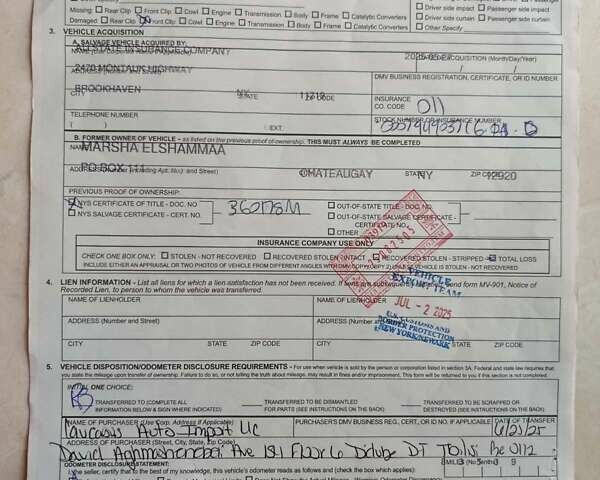 Missing: Rear Clip Front Clip Cowl Engine Transmission Body Frame Catalytic Converters
Damaged: Rear Clip Front Clip Cowl Engine Transmission Body Frame Catalytic Converters
Driver side impact Passenger side impact
Driver side curtain Passenger side curtain
Other Specify
3. VEHICLE ACQUISITION
A. SALVAGE VEHICLE ACQUIRED BY:
STATE INSURANCE COMPANY
ACQUISITION (Month/Day/Year)
2470 MONTAUK HIGHWAY
DMV BUSINESS REGISTRATION, CERTIFICATE, OR ID NUMBER
BROOKHAVEN NY
CITY STATE
INSURANCE CO. CODE 011
TELEPHONE NUMBER
( ) EXT.
STOCK NUMBER OR INSURANCE NUMBER
B. FORMER OWNER OF VEHICLE - as listed on the previous proof of ownership. THIS MUST ALWAYS BE COMPLETED
NAME MARSHA ELSHAMMAA
ADDRESS (Number including Apt. No.) and Street)
PO BOX 111 CHATEAUGAY STATE NY ZIP CODE 12920
PREVIOUS PROOF OF OWNERSHIP:
NYS CERTIFICATE OF TITLE - DOC. NO.
NYS SALVAGE CERTIFICATE - CERT. NO.
OUT-OF-STATE TITLE - DOC. NO.
OUT-OF-STATE SALVAGE CERTIFICATE - CERTIFICATE NO.
OTHER
INSURANCE COMPANY USE ONLY
CHECK ONE BOX ONLY: STOLEN - NOT RECOVERED RECOVERED STOLEN - INTACT RECOVERED STOLEN - STRIPPED TOTAL LOSS
4. LIEN INFORMATION - List all liens for which a lien satisfaction has not been received. If liens are subsequently send form MV-901, Notice of
Recorded Lien, to person to whom the vehicle was transferred.
NAME OF LIENHOLDER NAME OF LIENHOLDER
ADDRESS (Number and Street) ADDRESS (Number and Street)
CITY STATE ZIP CODE CITY STATE ZIP CODE
VEHICLE
EXPORT TEAM
JUL - 2 2025
U.S. CUSTOMS AND
BORDER PROTECTION
NEW YORK/NEWARK
5. VEHICLE DISPOSITION/ODOMETER DISCLOSURE REQUIREMENTS - For use when vehicle is sold by the person or corporation listed in section 3A. Federal and state law requires that
you state the mileage upon transfer of ownership. Failure to do so, or not telling the truth about mileage, may result in fines and/or imprisonment. This form will be returned to you if this section is not completed.
INITIAL ONE CHOICE:
TRANSFERRED TO COMPLETE ALL
INFORMATION BELOW & SIGN WHERE INDICATED)
TRANSFERRED TO BE DISMANTLED
FOR PARTS (SEE INSTRUCTIONS ON THE BACK)
TRANSFERRED TO BE SCRAPPED OR
DESTROYED (SEE INSTRUCTIONS ON THE BACK)
NAME OF PURCHASER (Use Corp. Address if Applicable) PURCHASER'S DMV BUSINESS REG., CERT, OR ID NO. IF APPLICABLE DATE OF TRANSFER
Caucasus Auto Import LLC
ADDRESS OF PURCHASER (Street, City, State, Zip Code)
David Aghmashenebeli Ave 181 Floor 6 Didube DT Tbilsi 0112
ODOMETER DISCLOSURE STATEMENT:
certify to the best of my knowledge, this vehicle's odometer reads as follows and (check the box which applies):